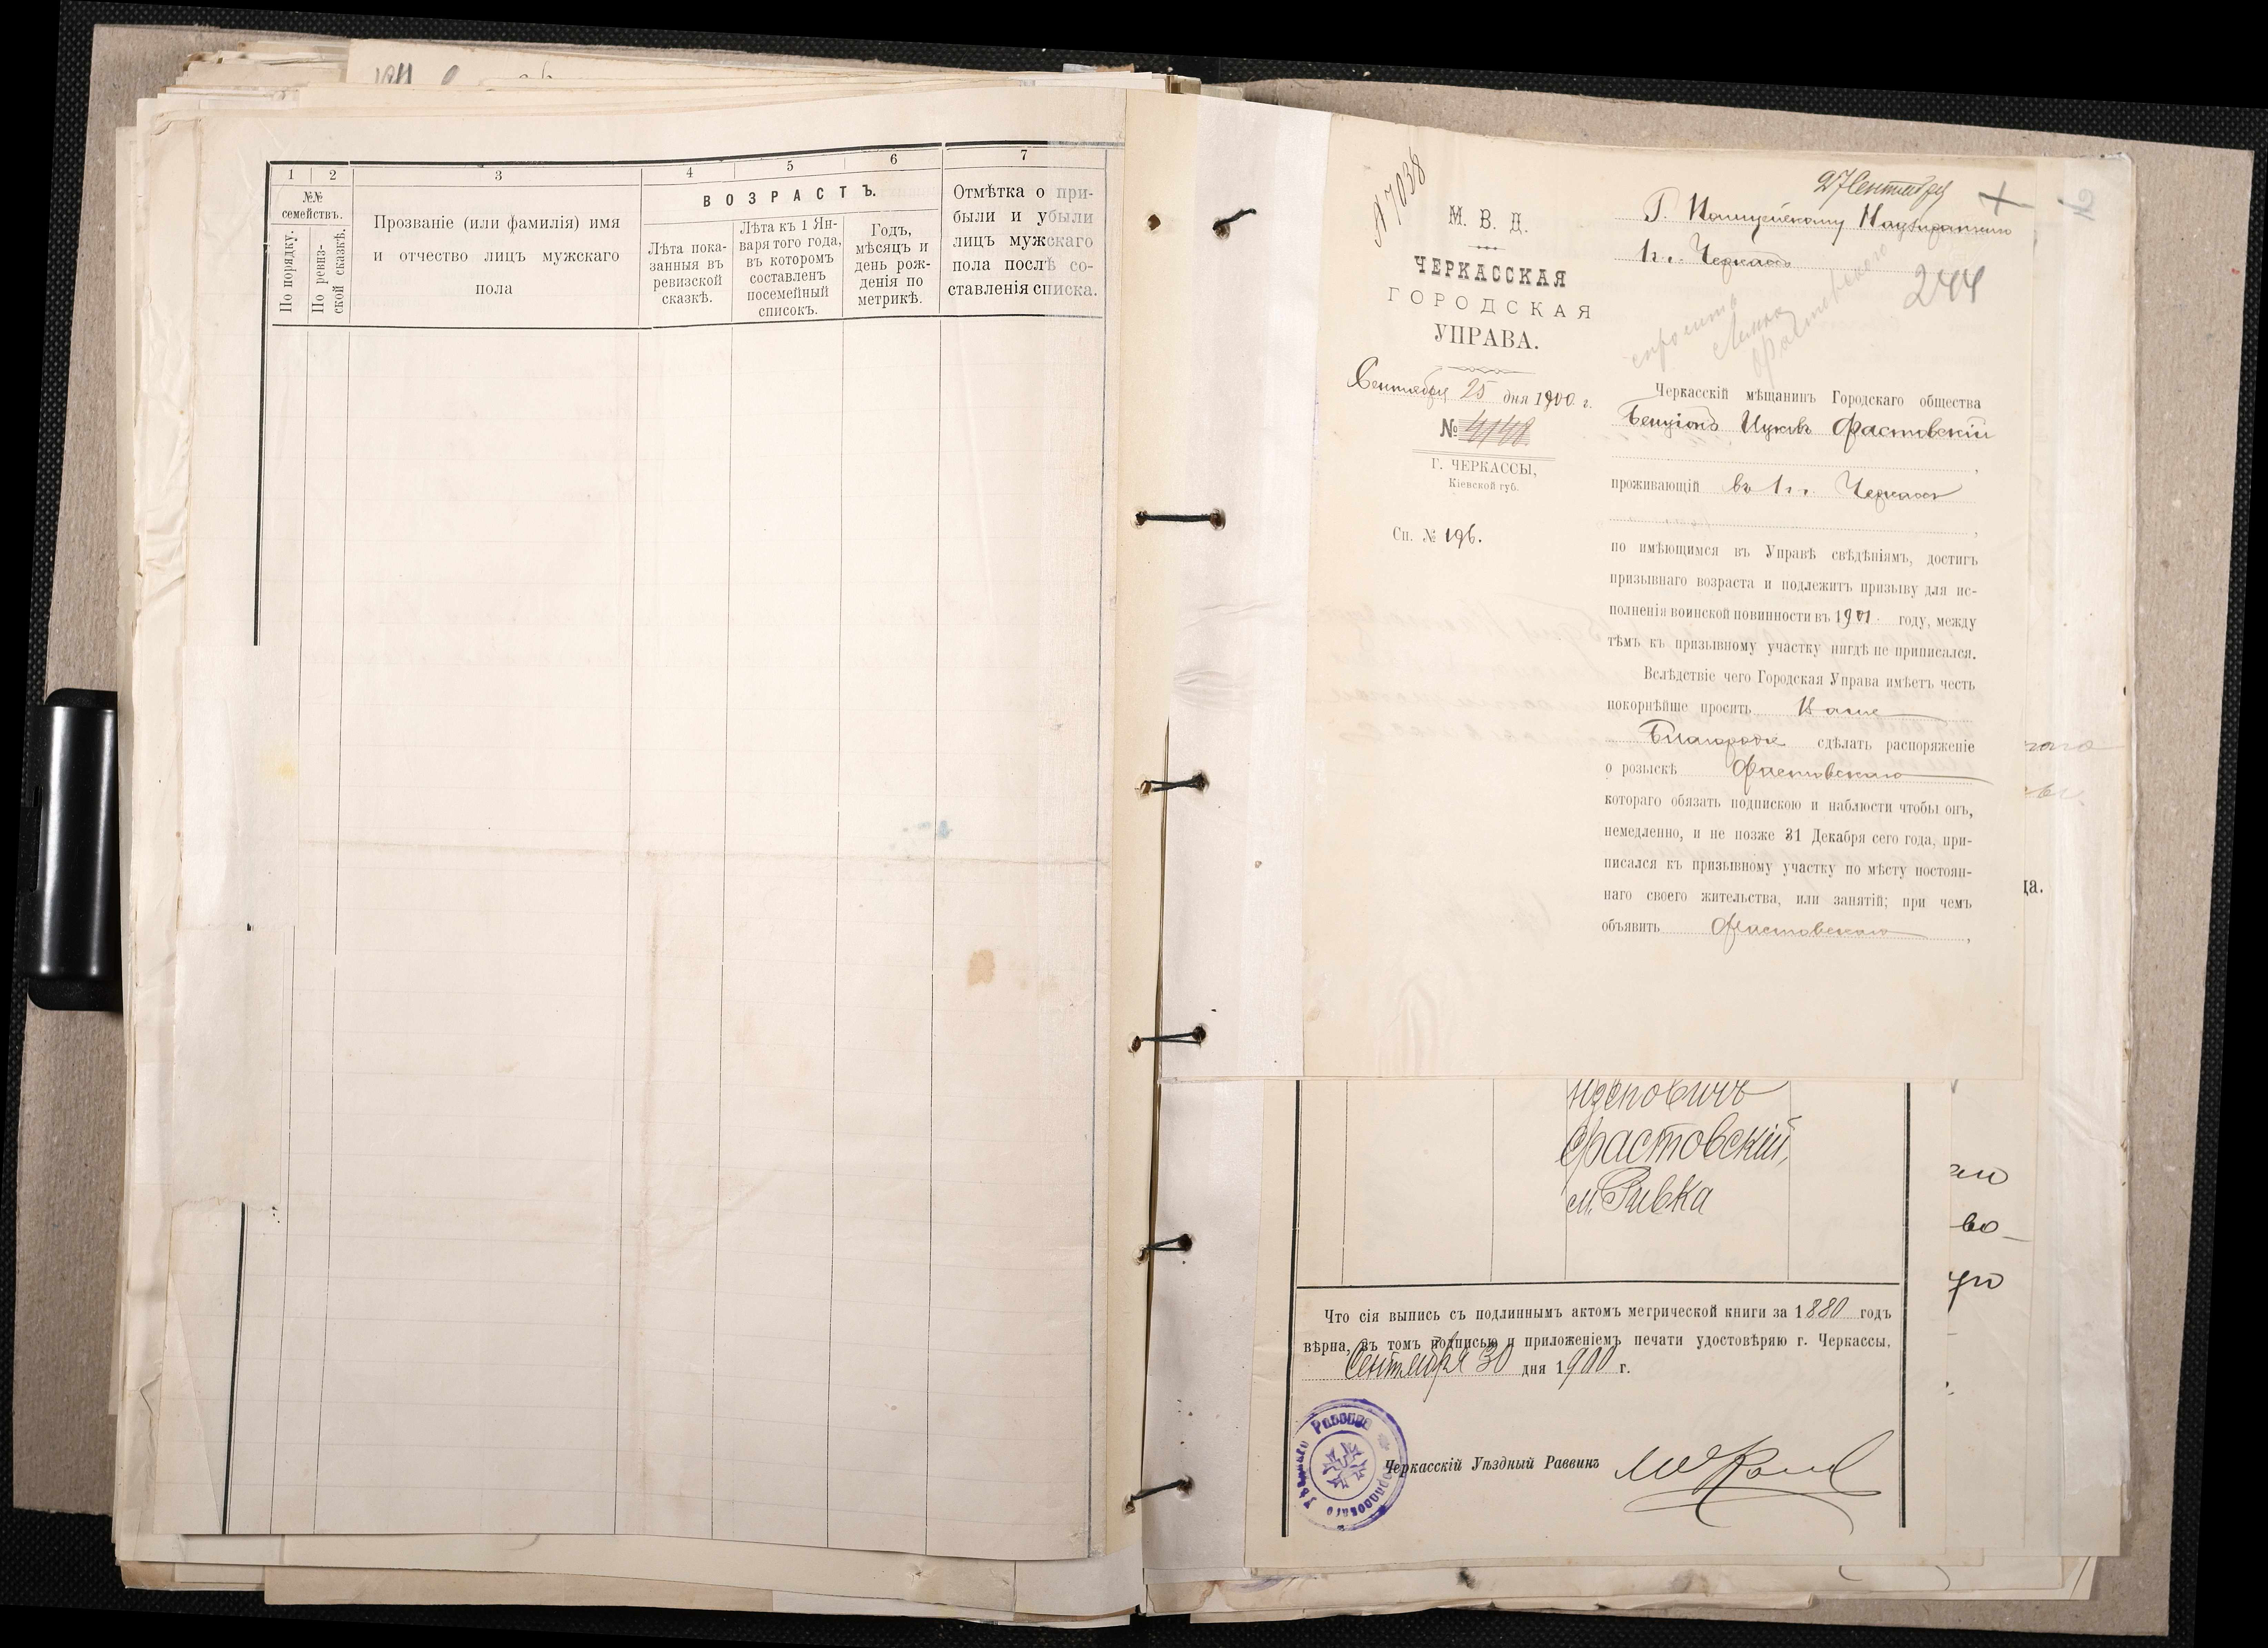 1 2 3 4 5 6 7
№№ семействъ.
По порядку.
По ревиз-
ской сказкѣ.
Прозваніе (или фамилія) имя
и отчество лицъ мужскаго
пола
ВОЗРАСТЪ.
Лѣта пока-
занныя въ
ревизской
сказкѣ.
Лѣта къ 1 Ян-
варя того года,
въ которомъ
составленъ
посемейный
списокъ.
Годъ,
мѣсяцъ и
день рож-
денія по
метрикѣ.
Отмѣтка о при-
были и убыли
лицъ мужскаго
пола послѣ со-
ставленія списка.
№ 7038
М. В. Д.
ЧЕРКАССКАЯ
ГОРОДСКАЯ
УПРАВА.
Сентября 25 дня 1900 г.
№ 4148
Г. ЧЕРКАССЫ,
Кіевской губ.
Сп. № 196.
27 Сентября
Г. Полицейскому Надзирателю
1 ч. г. Черкассъ
244
Черкасскій мѣщанинъ Городскаго общества
Бенціонъ Ицковъ Фастовскій
проживающій въ г. Черкассы
по имѣющимся въ Управѣ свѣдѣніямъ, достигъ
призывнаго возраста и подлежитъ призыву для ис-
полненія воинской повинности въ 1901 году, между
тѣмъ къ призывному участку нигдѣ не приписался.
Вслѣдствіе чего Городская Управа имѣетъ честь
покорнѣйше просить Ваше
Благородіе сдѣлать распоряженіе
о розыскѣ Фастовскаго
котораго обязать подпискою и наблюсти чтобы онъ,
немедленно, и не позже 31 Декабря сего года, при-
писался къ призывному участку по мѣсту постоян-
наго своего жительства, или занятій; при чемъ
объявить Фастовскаго,
Ицковичъ
Фастовскій,
м. Ривка
Что сія выпись съ подлиннымъ актомъ метрической книги за 1880 годъ
вѣрна, въ томъ подписью и приложеніемъ печати удостовѣряю г. Черкассы.
Сентября 30 дня 1900 г.
Черкасскій Уѣздный Раввинъ